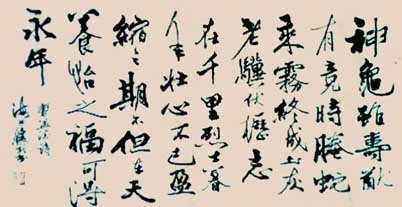 神龜雖壽猶
有竟時騰蛇
乘霧終成土灰
老驥伏櫪志
在千里烈士暮
年壯心不已盈
縮之期不但在天
養怡之福可得
永年